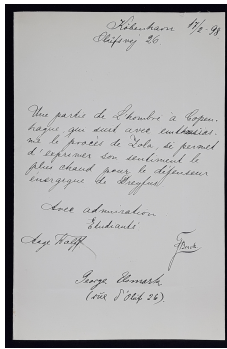 København 17/2-98
Olufsvej 26
Une partie de L'hombre à Copen-
hague, qui suit avec enthousias-
me le procès de Zola, se permet
d'exprimer son sentiment le
plus chaud pour le défenseur
energique de Dreyfus
Avec admiration
Etudiants
Aage
George
(rue d'Oluf 26).